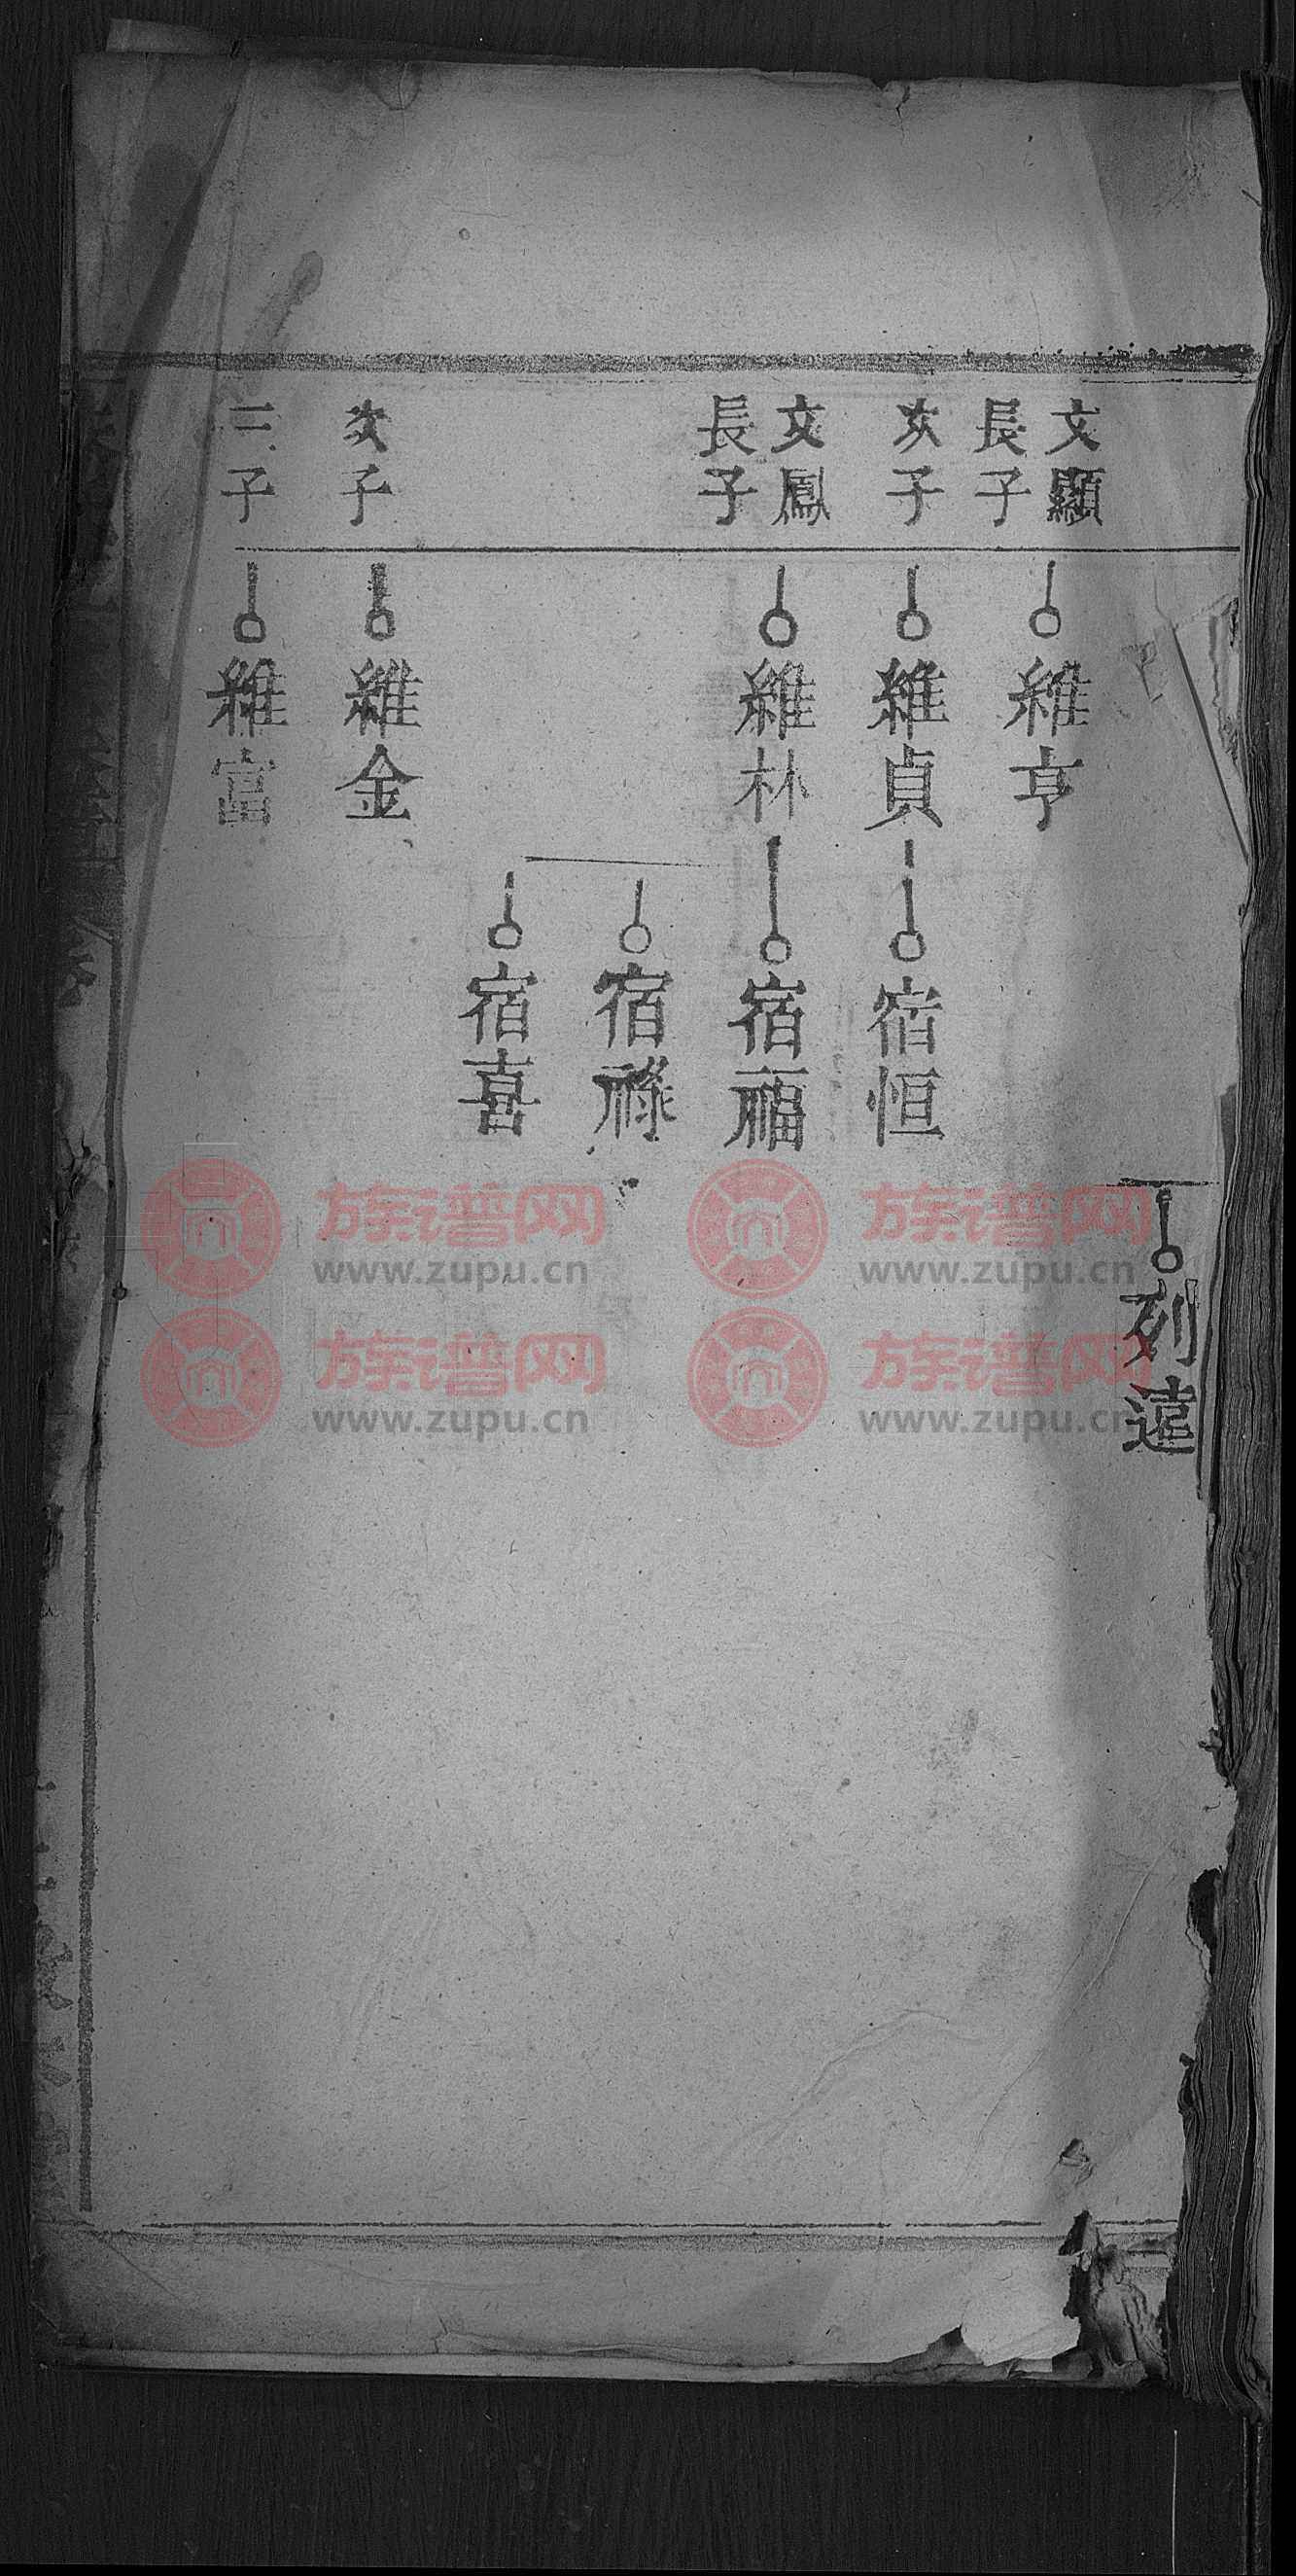 列遠
文顯
長子
維亨
次子
維貞
宿恒
文鳳
長子
維林
宿福
宿祿
宿喜
次子
維金
三子
維富
族谱网
www.zupu.cn
族谱网
www.zupu.cn
族谱网
www.zupu.cn
族谱网
www.zupu.cn